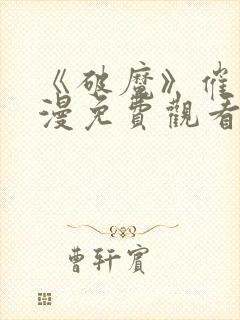 《破魔》催
漫免費觀看
曹轩賓